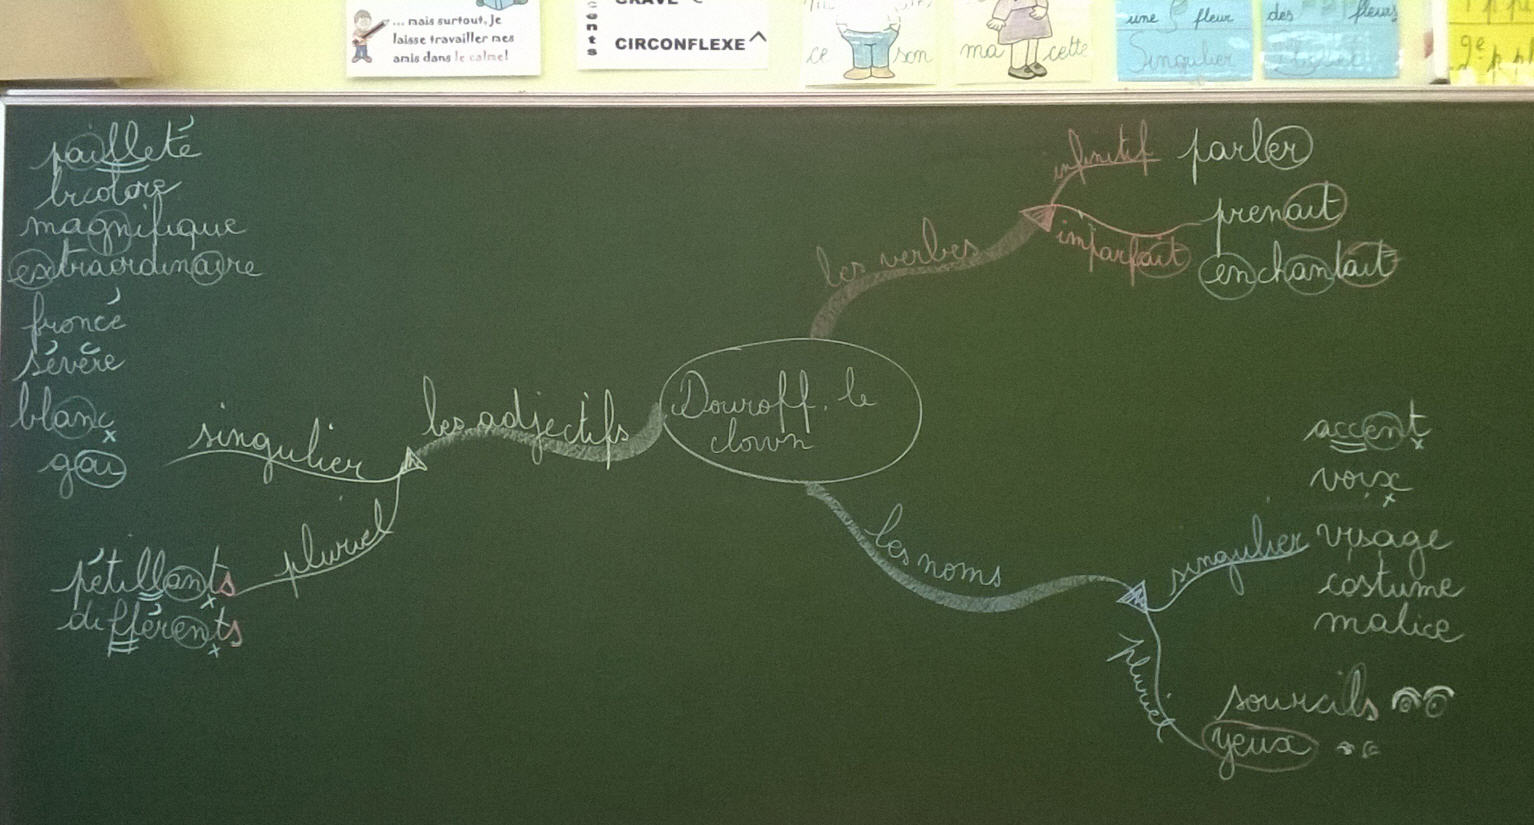 ... mais surtout, je
laisse travailler mes
amis dans le calme!
CIRCONFLEXE ^
ce son
ma cette
une fleur
Singulier
des fleurs
pailleté
tricolore
magnifique
extraordinaire
froncé
sévère
blanc
gai
singulier
les adjectifs
pluriel
pétillants
différents
Douroff, le
clown
les verbes
infinitif
parler
imparfait
prenait
enchantait
les noms
singulier
accent
voix
visage
costume
malice
pluriel
sourcils
yeux